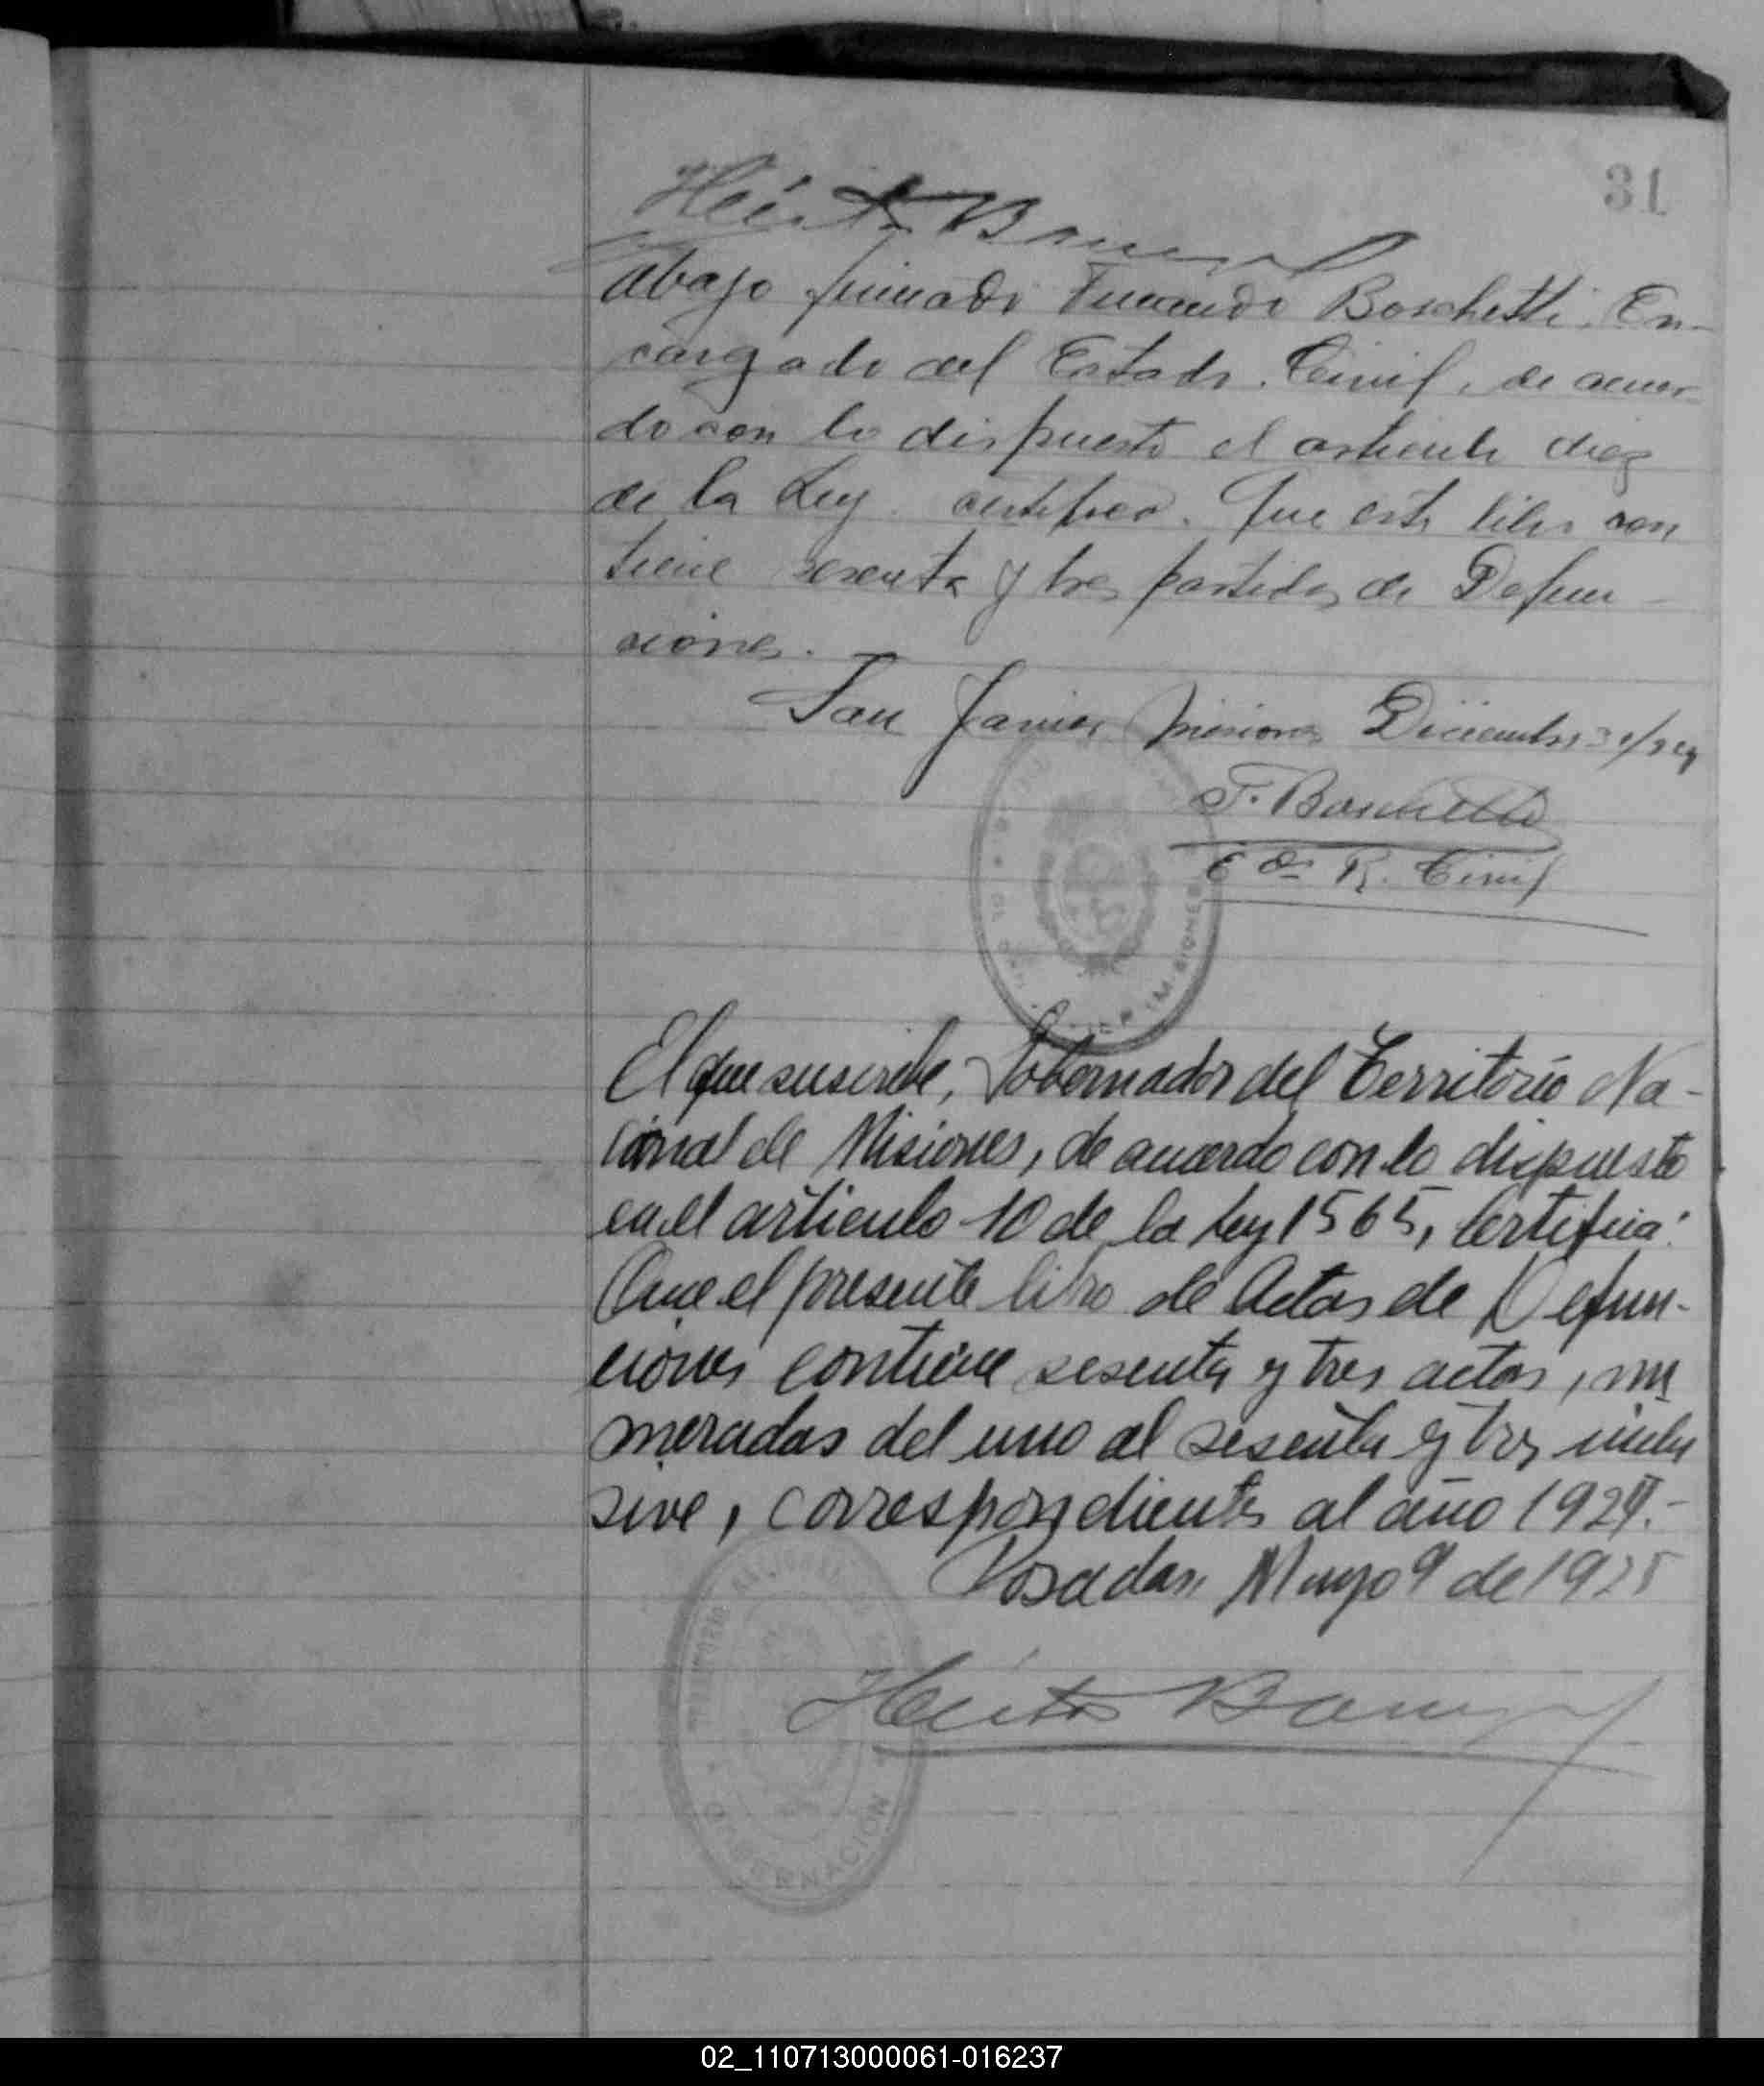 31
Héctor Barreyro
abajo firmado Fernando Boschetti En-
cargado del Estado Civil, de acuer-
do con lo dispuesto el articulo diez
de la Ley certifico. Que este libro con
tiene sesenta y tres partidas de Defun-
ciones.
San Javier Misiones Diciembre
F. Boschetti
Edo R. Civil
MISIONES
El que suscribe, Gobernador del Territorio Na-
cional de Misiones, de acuerdo con lo dispuesto
en el articulo 10 de la Ley 1565, Certifica:
Que el presente libro de Actas de Defun-
ciones contiene sesenta y tres actas, nu
meradas del uno al sesenta y tres inclu
sive, correspondientes al año 1924.-
Posadas, Mayo 9 de 1925
Héctor Barreyro
TERRITORIO NACIONAL
GOBERNACION
02_110713000061-016237